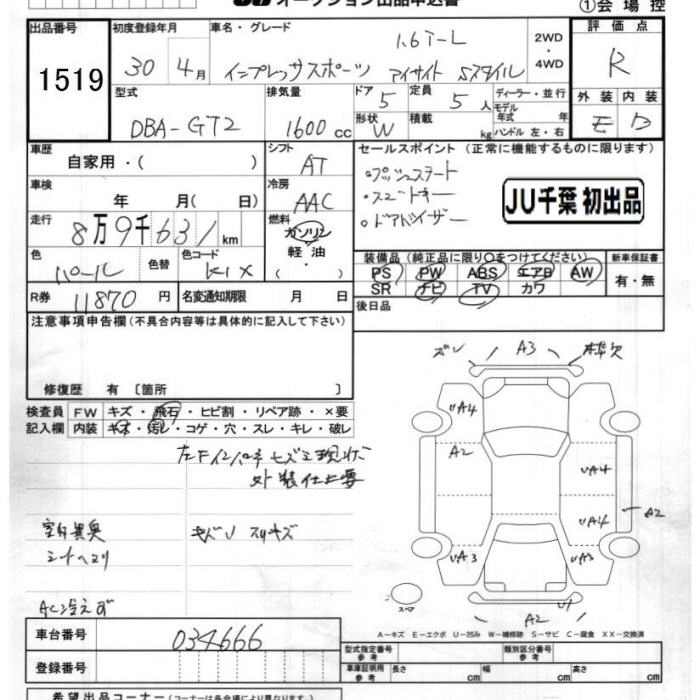 オークション出品申込書 ①会場控
出品番号 初度登録年月 車名・グレード 2WD・4WD 評価点
1519 30年 4月 1.6i-L インプレッサスポーツ アイサイト Sスタイル R
型式 排気量 ドア 5 定員 5人 ディーラー・並行 外装 内装
DBA-GT2 1600cc 形状 W 積載 kg モデル年式 年 ハンドル 左・右 E D
車歴 シフト セールスポイント (正常に機能するものに限ります)
自家用・( ) AT プッシュスタート
車検 冷房 ・スマートキー
年 月( 日) AAC ・ドアバイザー
JU千葉 初出品
走行 8万9千631km 燃料 ガソリン 軽油・( )
色 パール 色替 色コード K1X
装備品 (純正品に限り○をつけてください) 新車保証書
PS PW ABS エアB AW 有・無
SR ナビ TV カワ
R券 11870円 名変通知期限 月 日 後日品
注意事項申告欄 (不具合内容等は具体的に記入して下さい)
ズレ A3
修復歴 有 〔箇所 〕
検査員 FW キズ・飛石・ヒビ割・リペア跡・×要
記入欄 内装 キズ・汚レ・コゲ・穴・スレ・キレ・破レ
UA4
A2
UA4
外装仕上要
UA4 A2
キズ スリキズ
UA3 UA3
AC冷えず
スペア A2 U1
A－キズ E－エクボ U－凹み W－補修跡 S－サビ C－腐食 XX－交換済
車台番号 034666 型式指定番号 参考 類別区分番号 参考
登録番号 車庫証明用 参考 長さ cm 幅 cm 高さ cm
希望出品コーナー